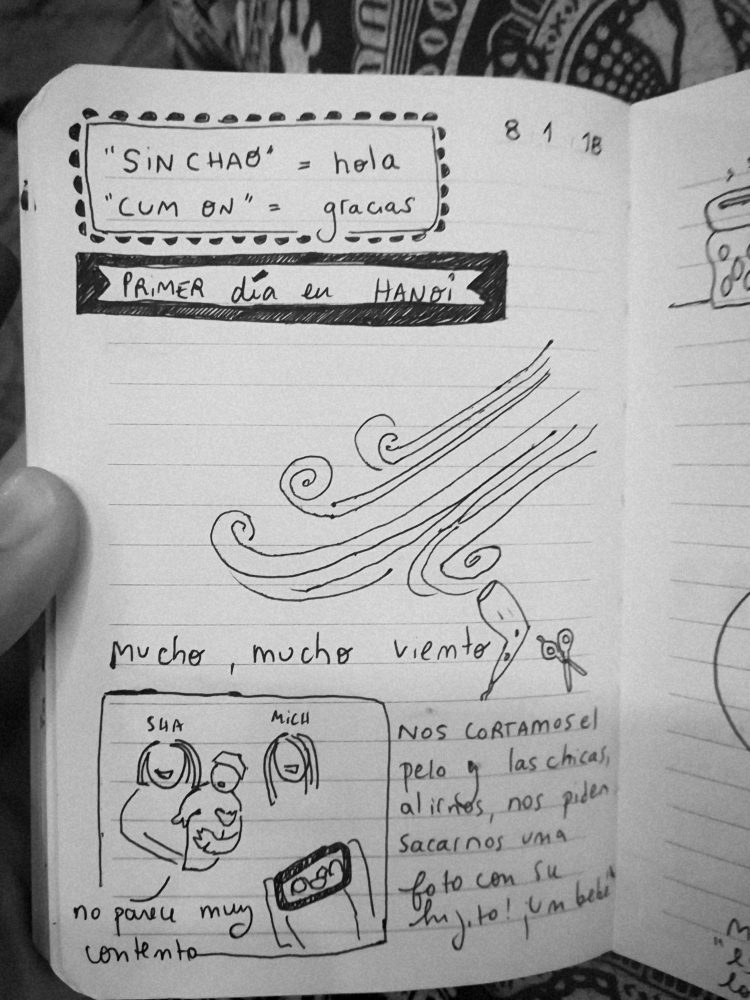 8 1 18
"SIN CHAO" = hola
"CUM ON" = gracias
PRIMER día en HANOi
Mucho, mucho viento
SHA
MiCH
no parece muy
contento
NOS CORTAMOS el
pelo y las chicas,
al irnos, nos piden
sacarnos una
foto con su
hijito! ¡Un bebé!